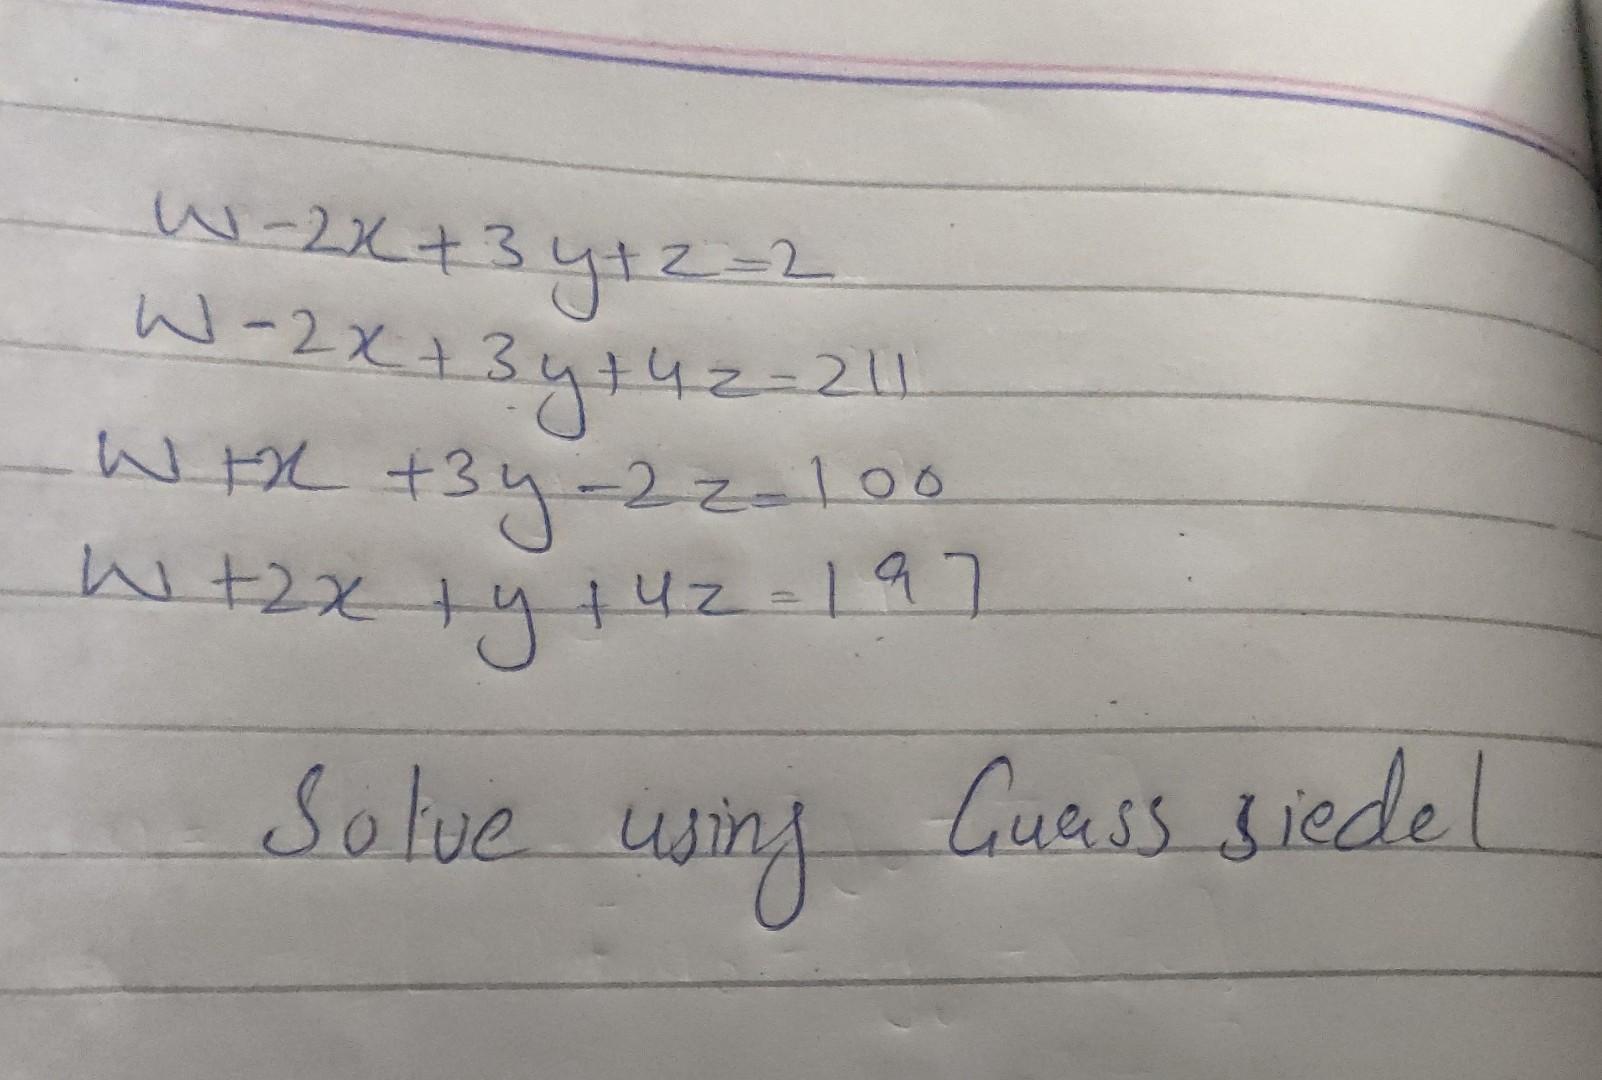 w-2x+3y+z=2
w-2x+3y+4z=211
w+x+3y-2z=100
w+2x+y+4z=197
Solve using Guass siedel